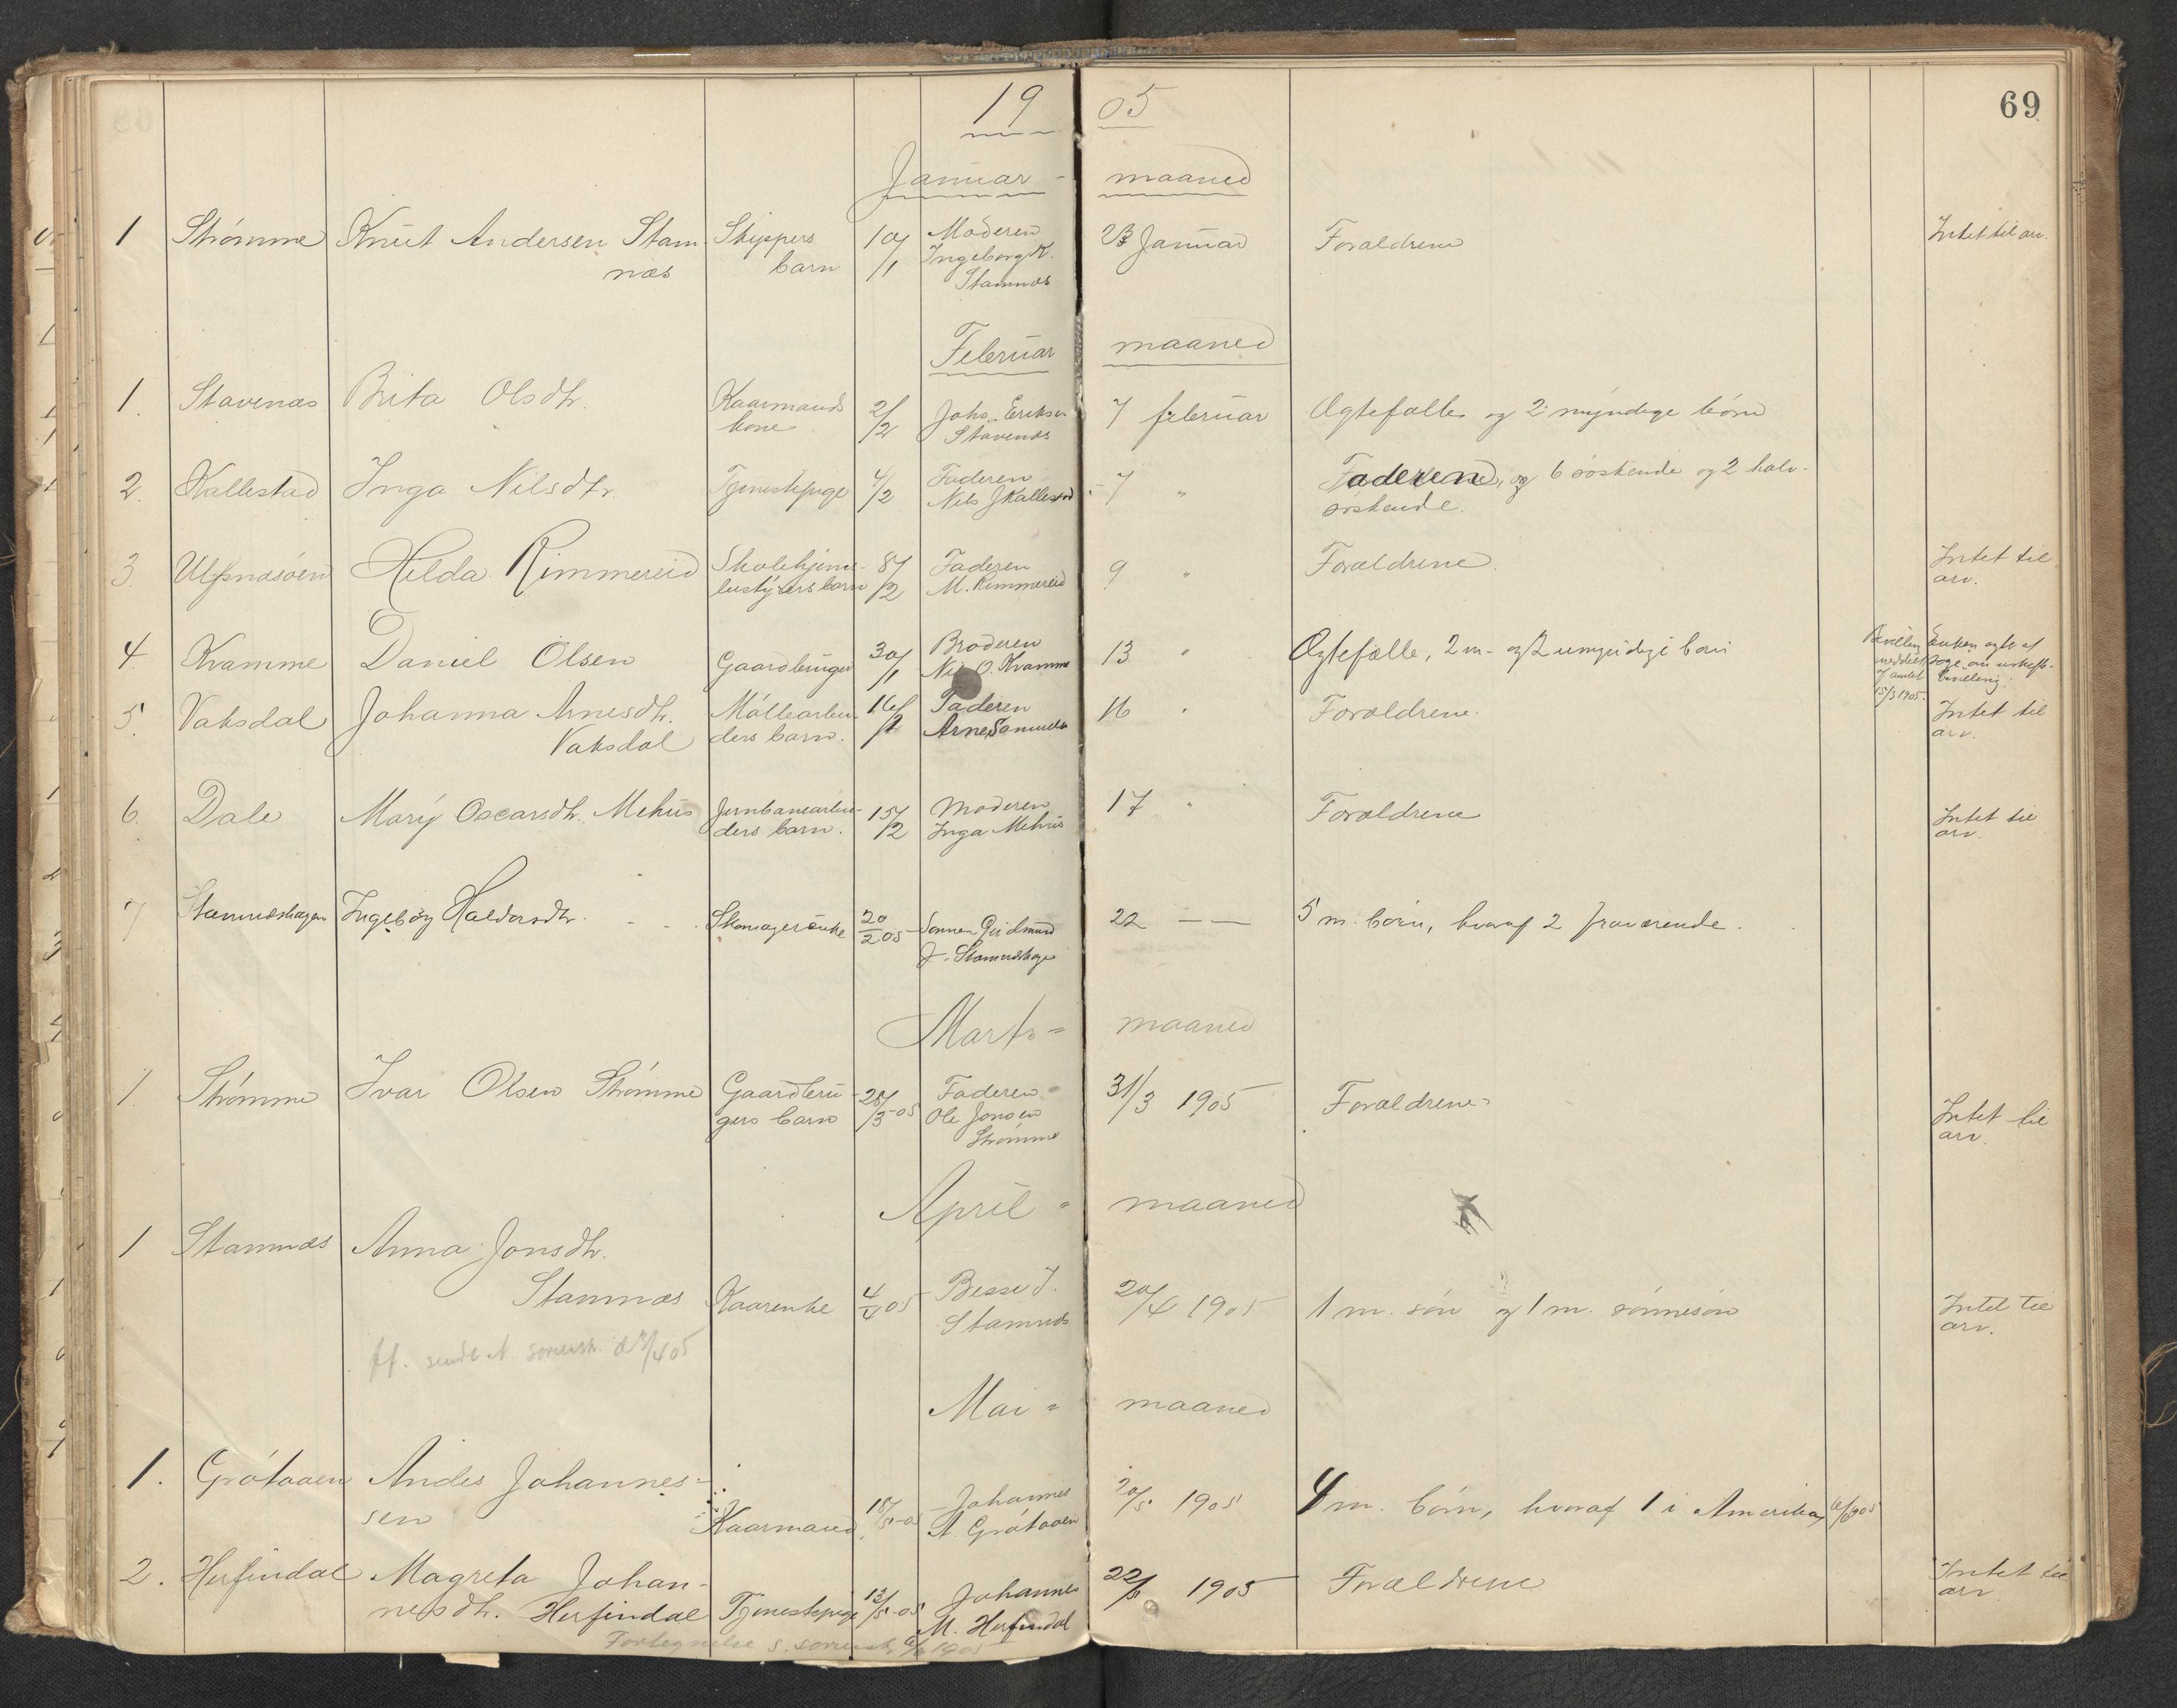 69
19 05
Januar - maaned
1 Strømme Knut Andersen Stam- Skippers 10/1 Moderen 23 Januar Forældrene Intet til arv.
næs barn Ingeborg K.
Stamnæs
Februar maaned
1. Stavenæs Brita Olsdtr. Kaarmands 2/2 Johs. Eriksen 7 februar Ægtefælle og 2 myndige børn
kone Stavenæs
2. Kallestad Inga Nilsdtr. Tjenestepige 4/2 Faderen 7 " Faderen, og 6 søskende og 2 halv-
Nils J Kallestad søskende.
3 Ulfsnæsøen Hilda Rimmereid Skolehjems- 8/2 Faderen 9 " Forældrene. Intet til
bestyrers barn M. Rimmereid arv.
4 Kvamme Daniel Olsen Gaardbruger 30/1 Broderen 13 " Ægtefælle, 2 m. og 2 umyndige børn Bevilling Enken agte at
Nils O. Kvamme meddelt
af amtet bevilling.
15/3 1905.
5. Vaksdal Johanna Arnesdtr. Møllearbei- 16/2 Faderen 16 " Forældrene. Intet til
Vaksdal ders barn. Arne Samuels arv.
6. Dale Mary Oscarsdtr. Mehus Jernbanearbei- 15/2 Moderen 17 " Forældrene Intet til
ders barn. Inga Mehus arv.
7 Stamneshagen Ingeborg Haldorsdtr. Skomagerenke 20/2 05 Sønnen Gudmund 22 — — 5 m. børn, hvoraf 2 fraværende.
J. Stamneshage
Marts - maaned
1. Strømme Ivar Olsen Strømme Gaardbru- 28/3-05 Faderen 31/3 1905 Forældrene. Intet til
gers barn Ole Jonsen arv.
Strømme
April - maaned
1 Stamnæs Anna Jonsdtr.
Stamnæs Kaarenke 4/4 05 Besse J. 20/4 1905 1 m. søn og 1 m. sønnesøn Intet til
Stamnæs arv.
ff. sendt sorensk.
Mai - maaned
1. Grøtaaen Andes Johannes-
sen Kaarmand 15/5-05 Johannes 20/5 1905 4 m. børn, hvoraf 1 i Amerika
A Grøtaaen
2. Herfindal Magreta Johan-
nesdtr. Herfindal Tjenestepige 12/5-05 Johannes 22/5 1905 Forældrene Intet til
M. Herfindal arv.
Fortegnelse s. sorensk. 1905